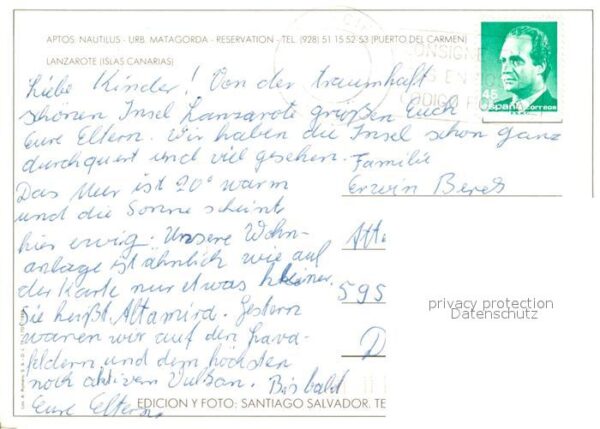 APTOS NAUTILUS - URB MATAGORDA - RESERVATION - TEL. (928) 51 15 52-53 (PUERTO DEL CARMEN)
LANZAROTE (ISLAS CANARIAS)
CONSIGNE
EN
CODIGO
45
españa correos
Liebe Kinder! Von der traumhaft
schönen Insel Lanzarote grüßen Euch
Eure Eltern. Wir haben die Insel schon ganz
durchquert und viel gesehen.
Das Meer ist 20° warm
und die Sonne scheint
hier ewig. Unsere Wohn-
anlage ist ähnlich wie auf
der Karte nur etwas kleiner.
Sie heißt Altamird. Gestern
waren wir auf den Lava-
feldern und dem höchsten
noch aktiven Vulkan. Bis bald
Eure Eltern
Familie
Erwin
595
D
privacy protection
Datenschutz
EDICION Y FOTO: SANTIAGO SALVADOR. TE